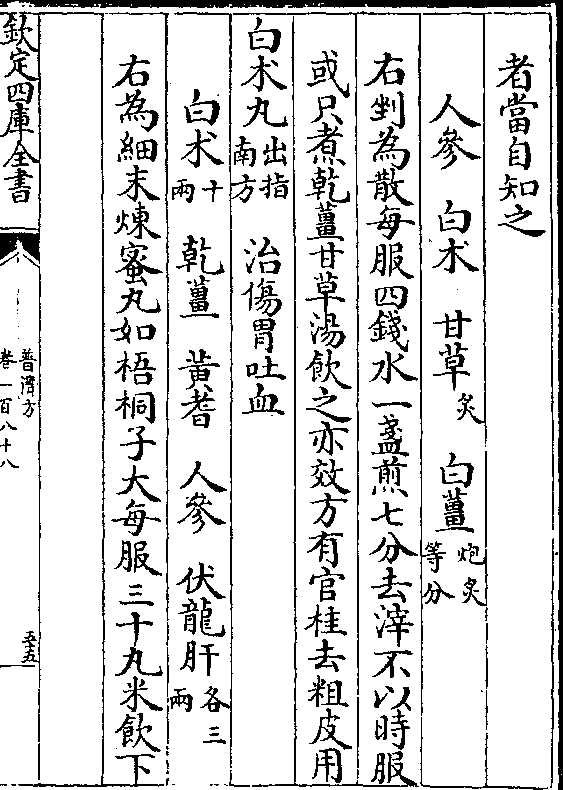 者當自知之
人參 白术 甘草炙 白薑炮炙等分
右剉為散每服四錢水一盞煎七分去滓不以時服
或只煮乾薑甘草湯飲之亦效方有官桂去粗皮用
白术丸出指南方 治傷胃吐血
白术十兩 乾薑 黃耆 人參 伏龍肝各三兩
右為細末煉蜜丸如梧桐子大每服三十丸米飲下
欽定四庫全書
普濟方
卷一百八十八
五五